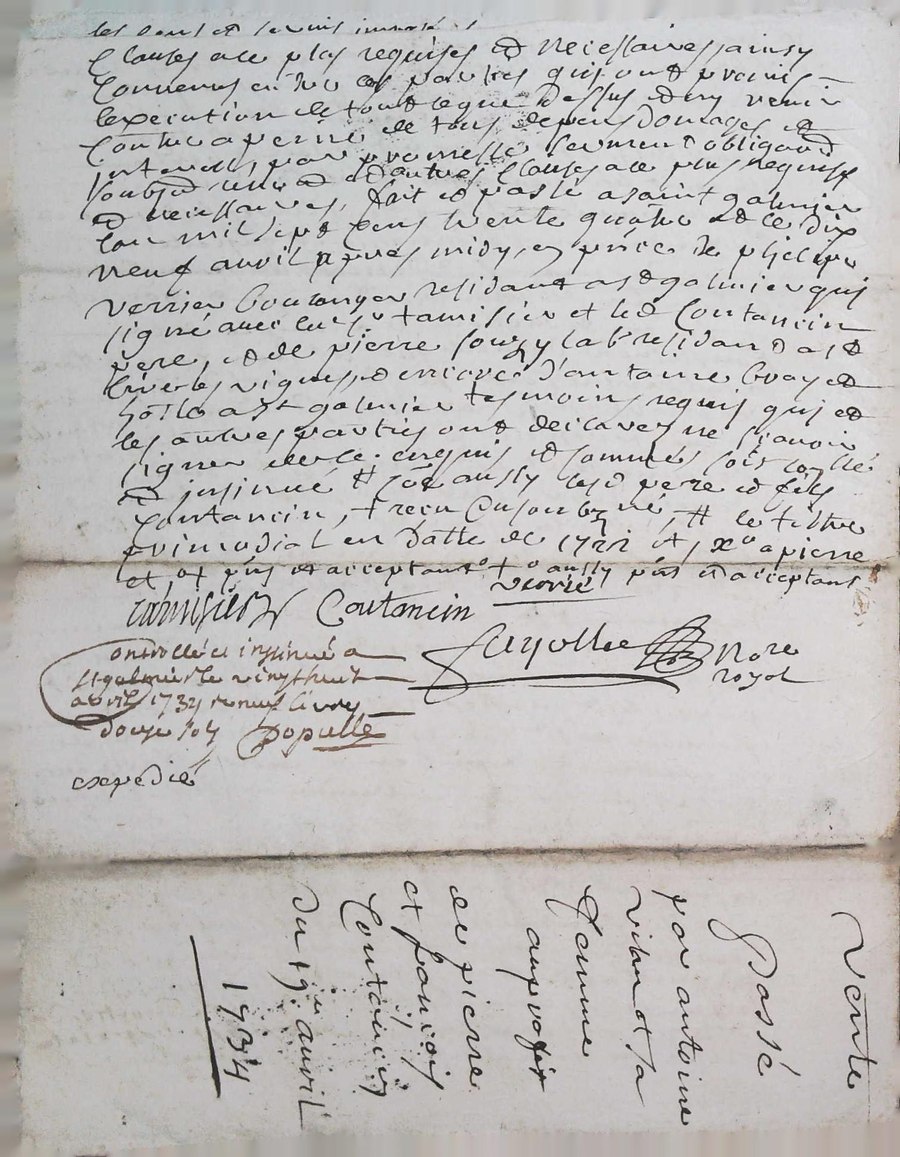 clauses ace plus requises et necessaires, ainsy
convenus entre les parties qui ont promis
lexecution de tout ceque dessus et ny venir
contre a peine de tous depens domages et
interests, par promesse serment obligaon
soubson renon et autres clauses ace plus requises
et necessaires, fait et passé a saint galmier
lan mil sept cens trente quatre et le dix
neuf avril apres midy, en pnce de philippe
verrier boulanger residant a st galmier qui
signé avec lesd. sr tamisier et led Contancin
pere, et de pierre souzy lab. residant a st
les vignes, et encore d'antoine
hoste a st galmier tesmoins requis qui et
les autres parties ont declarez ne scavoir
signer de ce enquis et sommés soit controllé
et insinué # aussy lesd pere et fils
Contancin, + # le tiltre
primordial en datte de 1722 a pierre
et pnt et acceptant + aussy pnt et acceptant
verrié
tamisier Contancin
fayolle Nore
royal
Controllé et insinué a
St galmier le vingt huit
avril 1734 r neuf livres
douze sols populle
expedié
Vente
Passé
par antoine
vilan et sa
femme
au proffit
de pierre
et françois
Contancin
Du 19e avril
1734